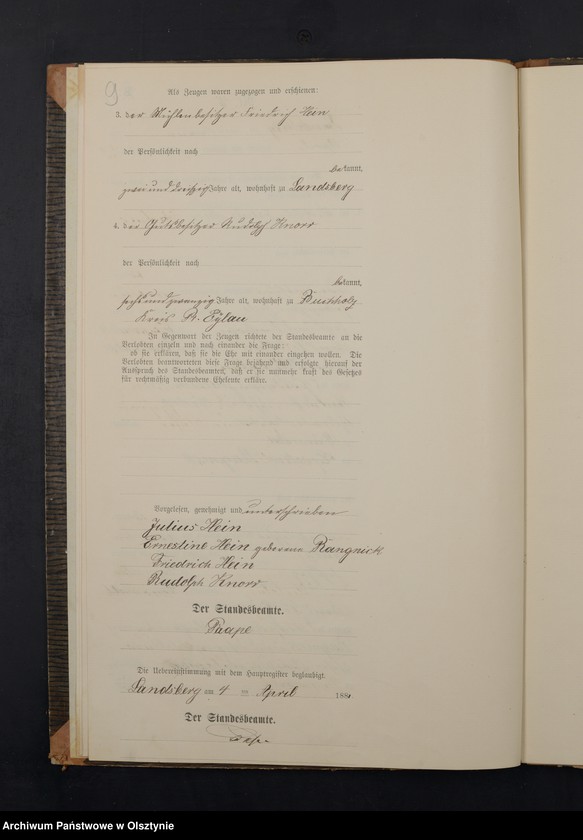 9
Als Zeugen waren zugezogen und erschienen:
3. der Mühlenbesitzer Friedrich Hein
der Persönlichkeit nach
bekannt,
zwei und dreißig Jahre alt, wohnhaft zu Landsberg
4. der Gutsbesitzer Rudolph Knorr
der Persönlichkeit nach
bekannt,
sechs und zwanzig Jahre alt, wohnhaft zu Buchholz
Kreis Pr. Eylau
In Gegenwart der Zeugen richtete der Standesbeamte an die
Verlobten einzeln und nach einander die Frage:
ob sie erklären, daß sie die Ehe mit einander eingehen wollen. Die
Verlobten beantworteten diese Frage bejahend und erfolgte hierauf der
Ausspruch des Standesbeamten, daß er sie nunmehr kraft des Gesetzes
für rechtmäßig verbundene Eheleute erkläre.
Vorgelesen, genehmigt und unterschrieben
Julius Hein
Ernestine Hein geborene Rangnick
Friedrich Hein
Rudolph Knorr
Der Standesbeamte.
Paape
Die Uebereinstimmung mit dem Hauptregister beglaubigt.
Landsberg am 4 ten April 188
Der Standesbeamte.
Archiwum Państwowe w Olsztynie